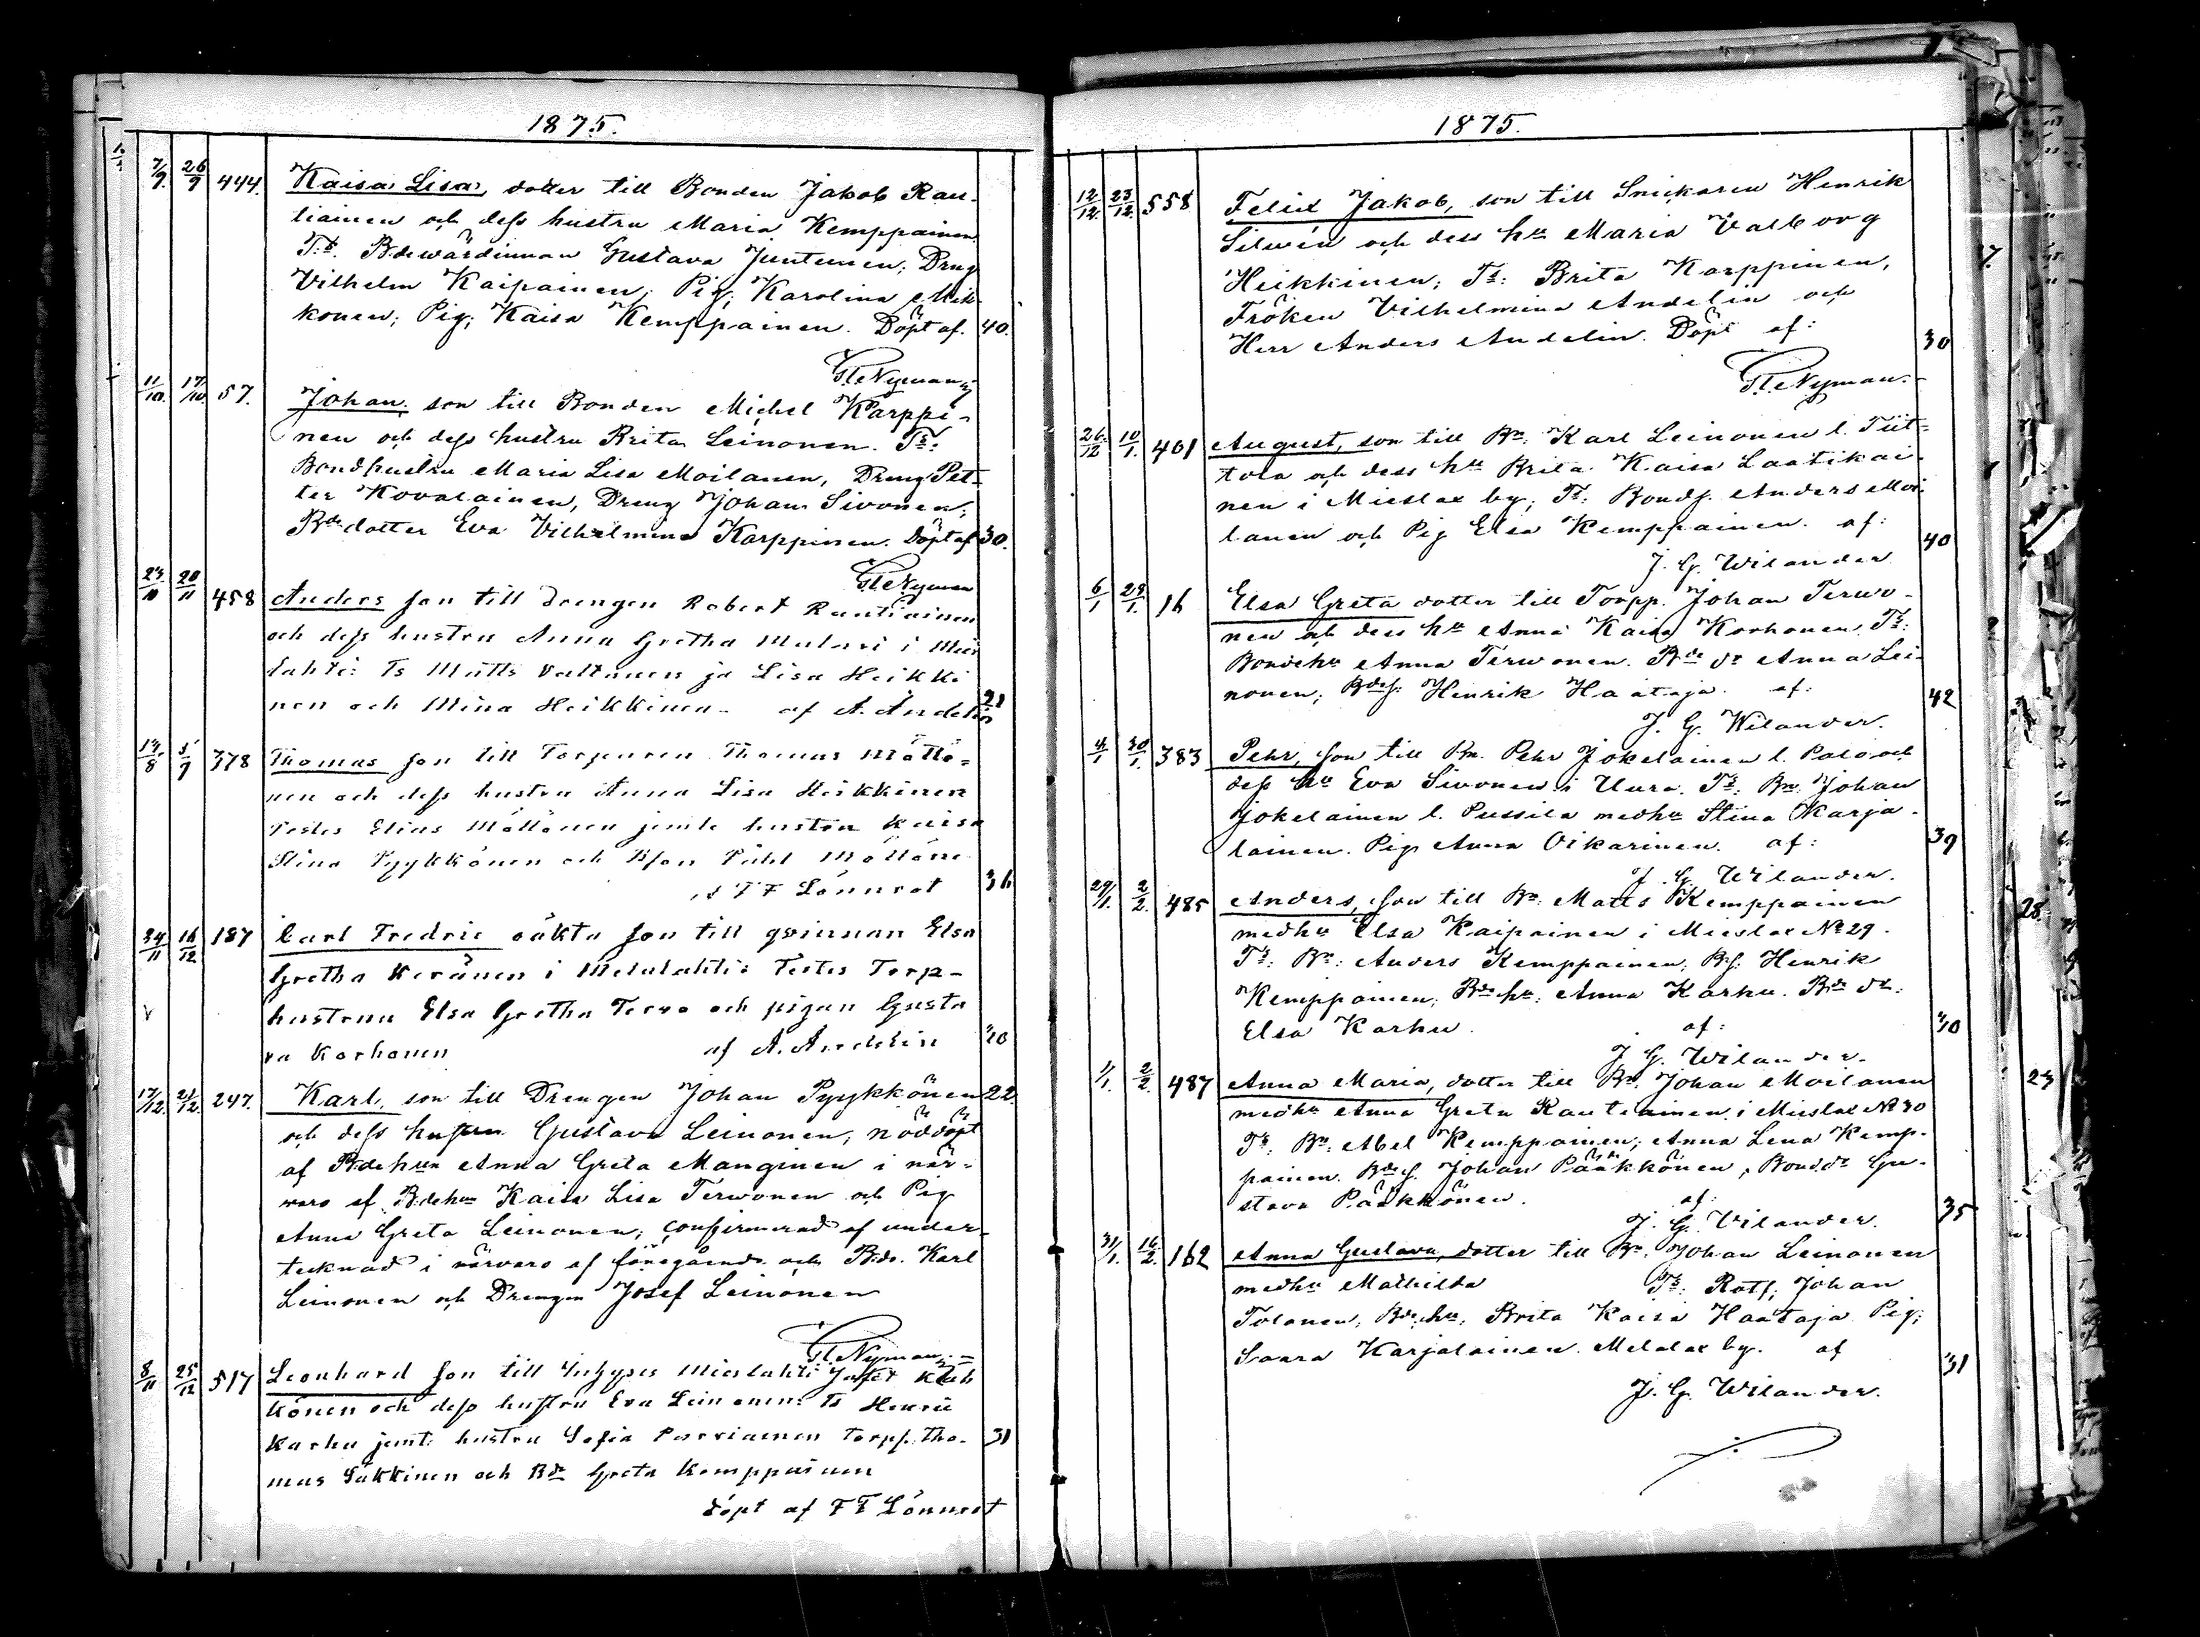 1875.
7/9. 26/9 444. Kaisa Lisa, dotter till Bonden Jakob Rau-
tiainen och dess hustru Maria Kemppainen.
Ts. Bdewärdinnan Gustava Juntunen; Dreng
Vilhelm Kaipainen; Pig; Karolina Mik-
konen; Pig; Kaisa Kemppainen. Döpt af. 40.
Nyman
11/10. 17/10. 57. Johan, son till Bonden Michel Karppi-
nen och dess hustru Brita Leinonen. Ts.
Bondhustru Maria Lisa Moilanen, Dreng Pet-
ter Kovalainen, Dreng Johan Sivonen,
Bde dotter Eva Vilhelmina Karppinen. Döpt af 30.
Nyman
23/10 20/11 458 Anders son till Drengen Robert Rautiainen
och dess hustru Anna Gretha Mulari i Mies
lahti: Ts Matts Valtanen ja Lisa Heikki
nen och Mina Heikkinen - af A. Andelin 21
13/8 5/9 378 Thomas son till Torparen Thomas Möttö-
nen och dess hustru Anna Lisa Heikkinen
Testes Elias Möttönen jemte hustru Kaisa
Stina Pyykkönen och Bson Pähl Möttöne
F F Lönnrot 36
24/11 16/12 187 Carl Fredric oäkta son till qvinnan Elsa
Gretha Keränen i Melalahti: Testes Torp-
hustrun Elsa Gretha Tervo och pigan Gusta
va Korhonen af A. Andelin 20
17/12. 21/12. 247. Karl, son till Drengen Johan Pyykkönen 22.
och dess hustru Gustava Leinonen, nöddöpt
af Bdehun Anna Greta Manginen i när-
varo af Bdehun Kaisa Lisa Terwonen och Pig
Anna Greta Leinonen; confirmerad af under-
tecknad i närvaro af föregående och Bds. Karl
Leinonen och Drengen Josef Leinonen
Nyman
8/11 25/12 517 Leonhard son till Inhyses Mieslahti Jafet
könen och dess hustru Eva Leinonen: Ts Henric
Karhu jemt: hustru Sofia Parviainen Torps. Tho- 31
mas Säkkinen och Bde Greta Kemppainen
döpt af F F Lönnrot
1875.
12/12. 23/12. 558 Felix Jakob, son till Snickaren Henrik
Silwén och dess hu Maria Valborg
Heikkinen; Ts: Brita Karppinen,
Fröken Vilhelmina Andelin och
Herr Anders Andelin. Döpt af: 30
Nyman.
26/12 10/1. 401 August, son till Bn: Karl Leinonen l. Tiit-
tola och dess hu Brita Kaisa Laatikai-
nen i Mieslax by; Ts: Bonds. Anders Moi-
lanen och Pig Elsa Kemppainen. af: 40
J. G. Wilander
6/1 23/1. 16 Elsa Greta dotter till Torpp. Johan Terwo-
nen och dess hu Anna Kaisa Korhonen. Ts:
Bondehu Anna Terwonen. Bde dr Anna Lei-
nonen; Bdes: Henrik Haataja. af: 42
J. G. Wilander.
4/1 30/1. 383 Pehr, son till Bn. Pehr Jokelainen l. Palo och
dess hu Eva Sivonen i Uura. Ts: Bn. Johan
Jokelainen l. Pussila med hu Stina Karja-
lainen. Pig Anna Oikarinen. af: 39
J. G. Wilander.
29/1. 2/2. 485 Anders, son till Bn: Matts Kemppainen
med hu Elsa Kaipainen i Mieslax No 29.
Ts: Bn: Anders Kemppainen; Bs: Henrik
Kemppainen; Bde hu: Anna Karhu. Bde dr:
Elsa Karhu. af: 30
J. G. Wilander.
1/1. 2/2. 487 Anna Maria, dotter till Bn. Johan Moilanen
med hu Anna Greta Rautiainen i Mieslax No 30
Ts: Bn: Abel Kemppainen; Anna Lena Kemp-
painen. Bdes. Johan Pääkkönen, Bond.dr Gu-
stava Pääkkönen. af: 35
J. G. Wilander.
31/1. 16/2. 162 Anna Gustava, dotter till Bn. Johan Leinonen
med hu Mathilda Ts: Rotf: Johan
Tolonen; Bde hu. Brita Kaisa Haataja Pig;
Saara Karjalainen. Melalax by. af 31
J. G. Wilander.